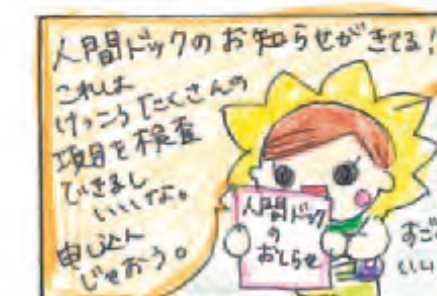 人間ドックのお知らせがきてる！
これは
けっこうたくさんの
項目を検査
できるし
いいよな。
申し込ん
じゃおう。
人間ドック
の
おしらせ
すご
いい